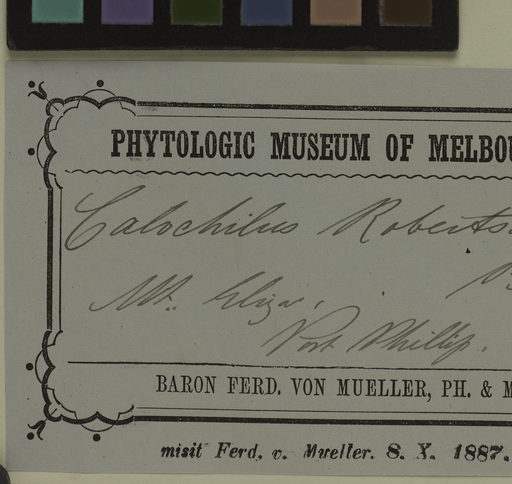 PHYTOLOGIC MUSEUM OF MELBOU
Calochilus Roberts
Mt. Eliza,
Port Phillip.
BARON FERD. VON MUELLER, PH. & M
misit Ferd. v. Mueller. 8. X. 1887.